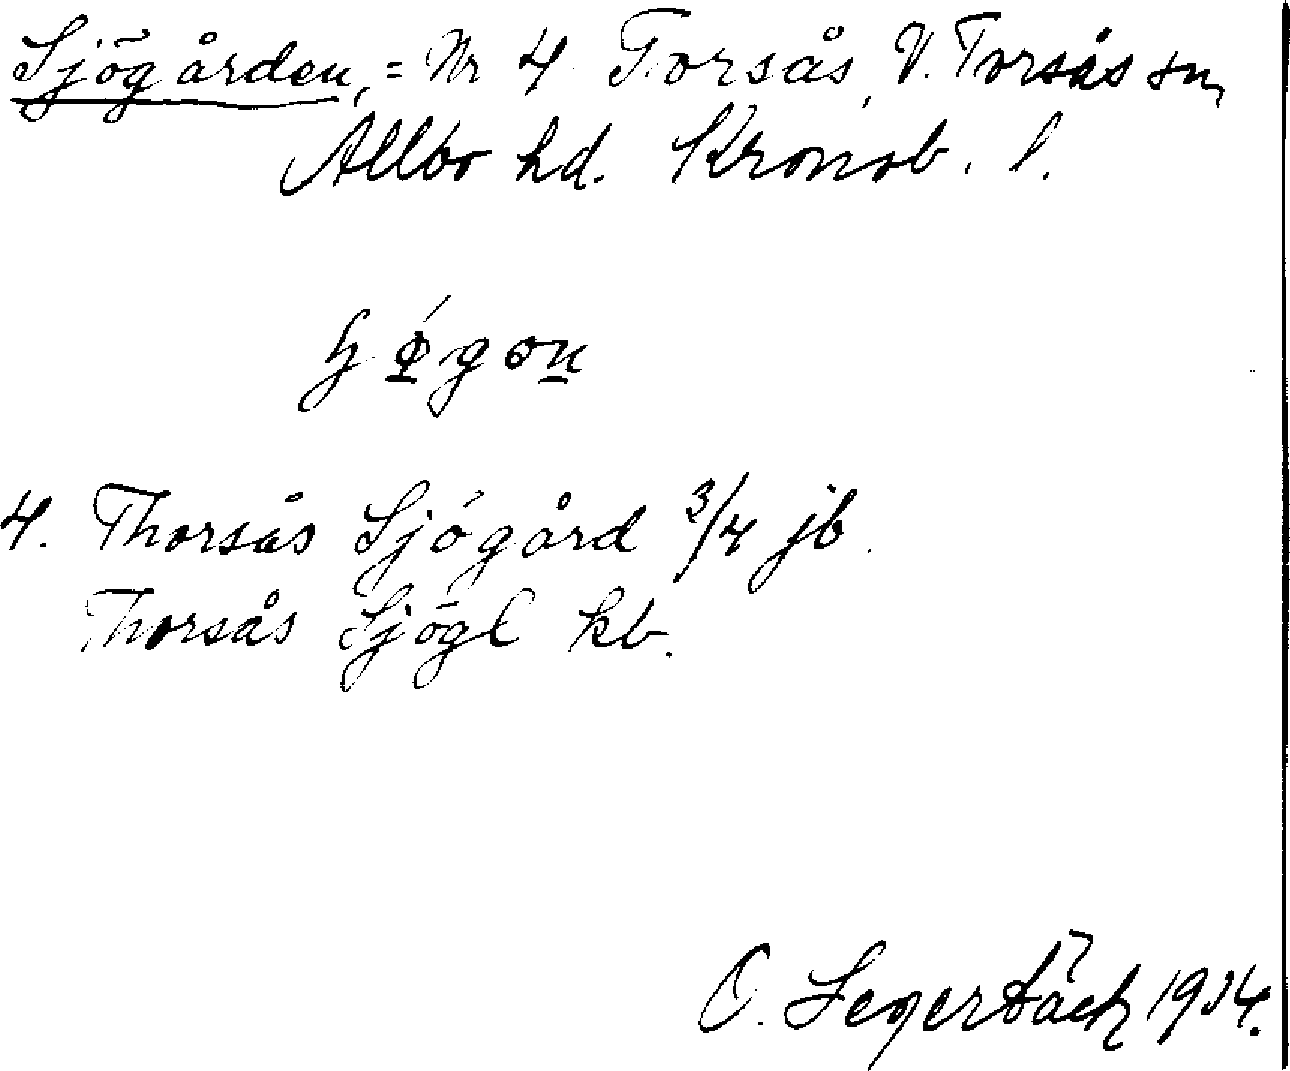 Sjögården, = Nr 4 Torsås, V. Torsås sn,
Allbo hd. Kronob. l.
4. Thorsås Sjögård 3/4 jb.
Thorsås Sjögl kb.
O. Segerbäck 1934.